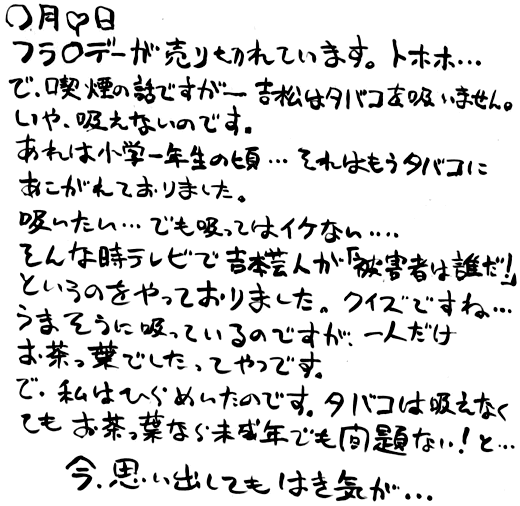 〇月♡日
フラ〇デーが売り切れています。トホホ…
で、喫煙の話ですがー吉松はタバコを吸いません。
いや、吸えないのです。
あれは小学一年生の頃…それはもうタバコに
あこがれておりました。
吸いたい…でも吸ってはイケない‥‥
そんな時テレビで吉本芸人が「被害者は誰だ!」
というのをやっておりました。クイズですね…
うまそうに吸っているのですが、一人だけ
お茶っ葉でしたってやつです。
で、私はひらめいたのです。タバコは吸えなく
ても お茶っ葉なら未成年でも問題ない!と…
今、思い出しても はき気が…